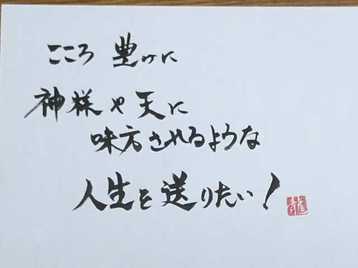 こころ 豊かに
神様や天に
味方されるような
人生を送りたい!